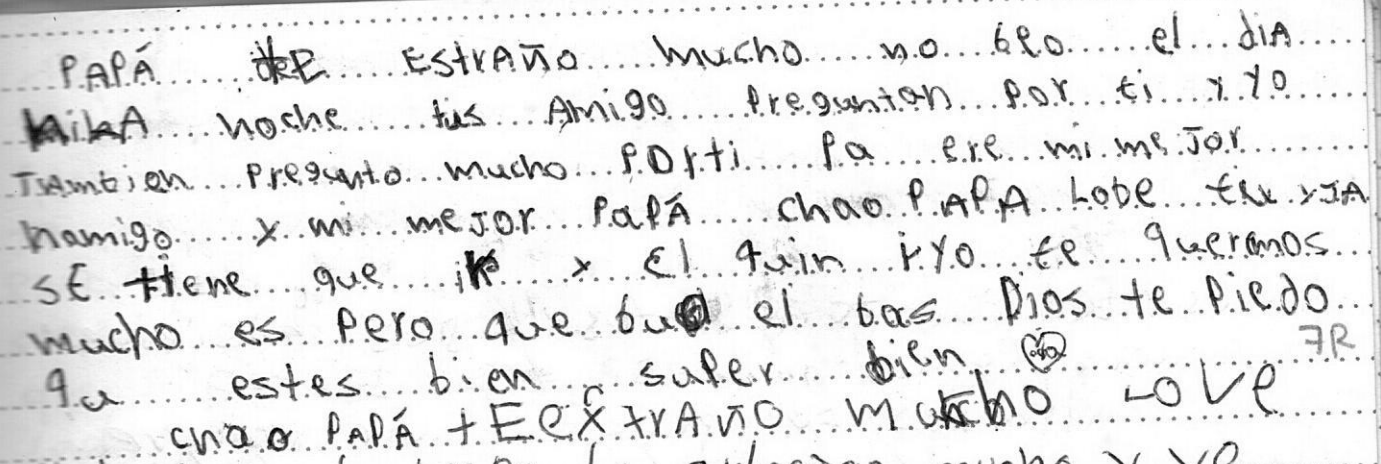 PAPÁ te EStrAÑo mucho no beo el diA
NikA noche tus Amigo Preguntan Por ti y yo
TAmbien Pregunto mucho Porti Pa ere mi me Jor
hamigo y mi meJor PaPÁ chao PAPA Lobe y JA
SE tiene que ir y El quin i Yo te queremos
mucho es Pero que el bas Dios te Piedo
qu estes bien super bien
7R
chao PAPÁ tEeXtrAÑo Mucho LOVE
mucho y yo